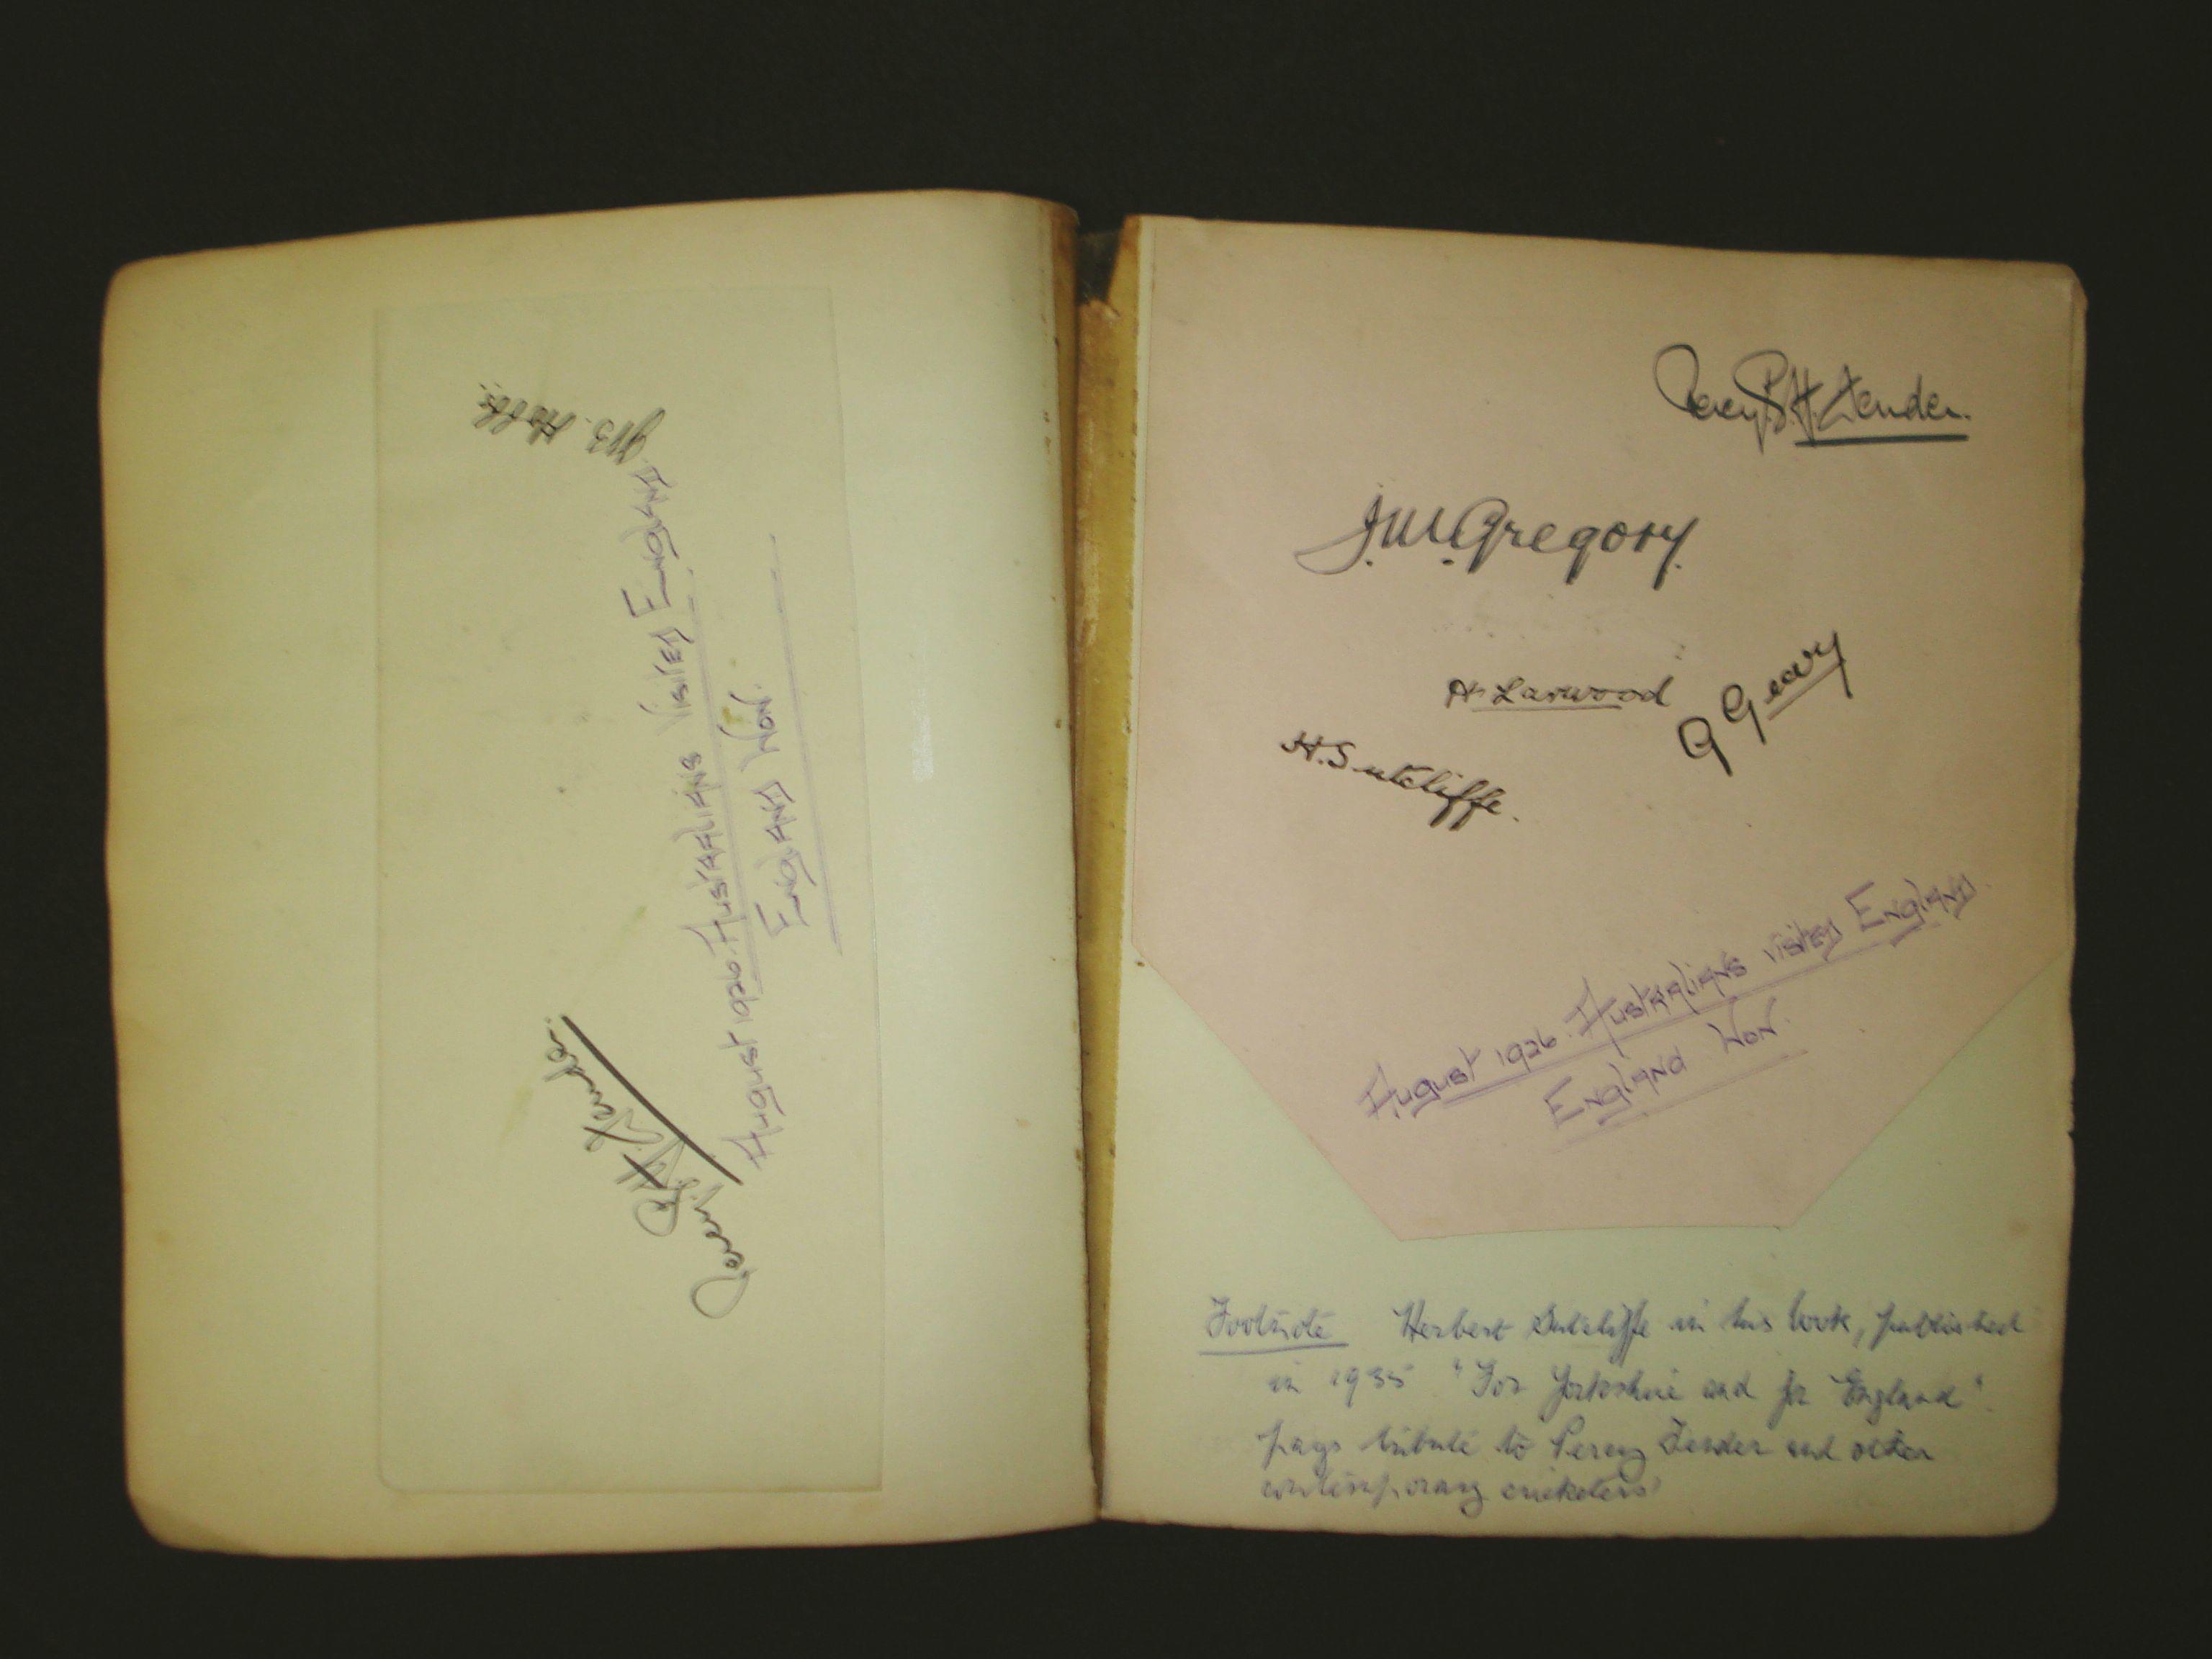 J.B. Hobbs.
August 1926. Australians Visited England.
England Won.
Percy G.H. Fender.
Percy G.H. Fender.
J.M. Gregory.
H. Larwood
G Geary
H. Sutcliffe.
August 1926. Australians visited England.
England Won.
Footnote Herbert Sutcliffe in his book, published
in 1935 "For Yorkshire and for England".
pays tribute to Percy Fender and other
contemporary cricketers